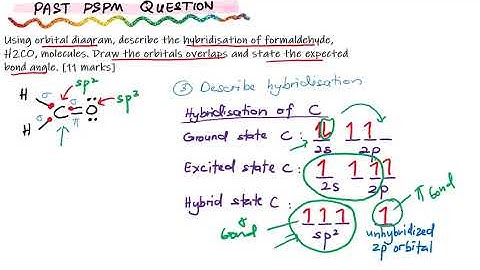 PAST PSPM QUESTION
Using orbital diagram, describe the hybridisation of formaldehyde,
H2CO, molecules. Draw the orbitals overlaps and state the expected
bond angle. [11 marks]
sp²
sp²
H σ
C σ O
π
H σ
③ Describe hybridisation
Hybridisation of C
Ground state C : 1L 1 1
2s 2p
Excited state C : 1 1 1 1
2s 2p
Hybrid state C : 1 1 1 1
π bond
σ bond
sp² unhybridized
2p orbital